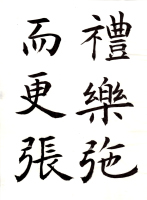 禮樂弛
而更張